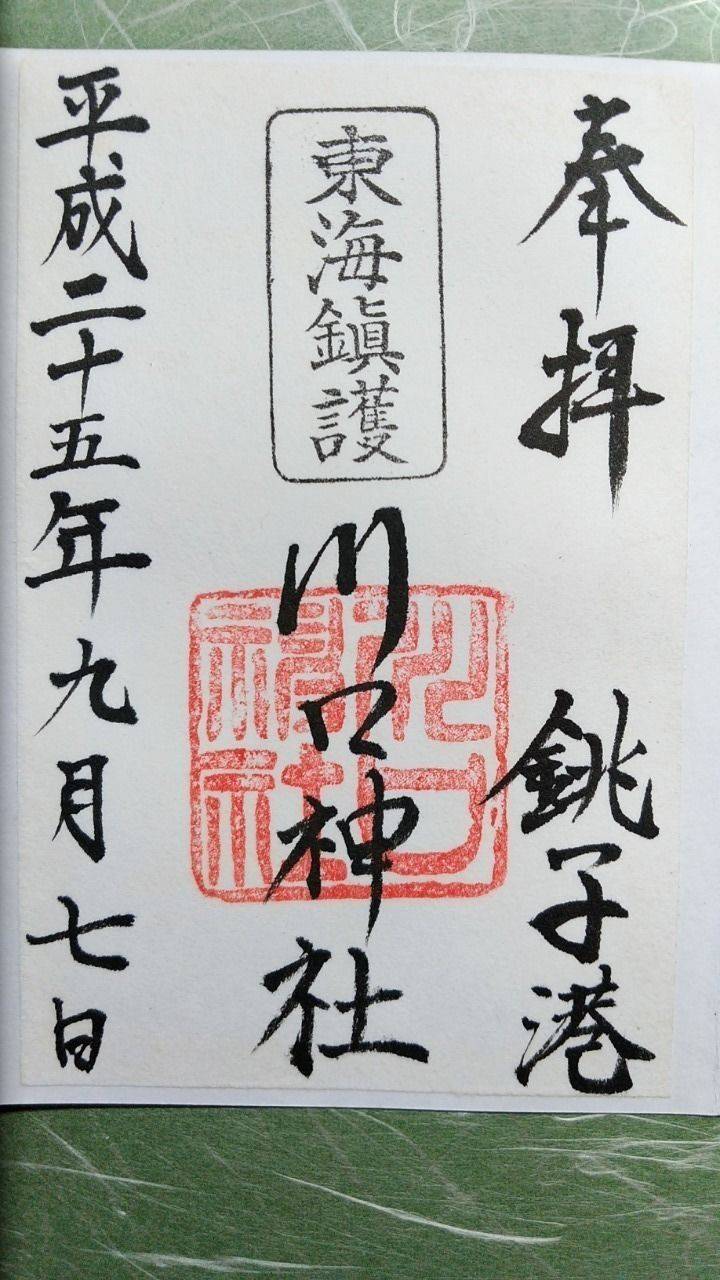 奉拝
銚子港
東海鎮護
川口神社
川口神社
平成二十五年九月七日